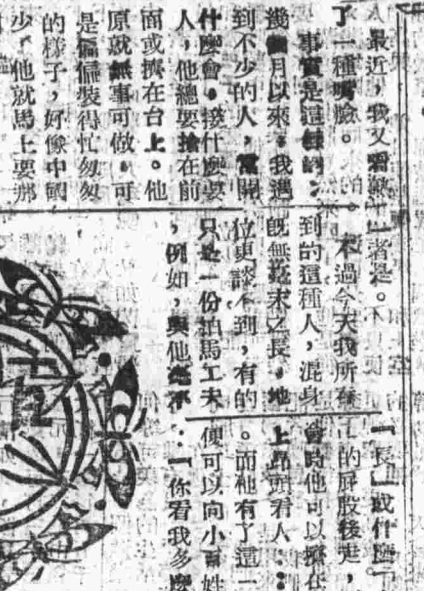 最近,我又看熟
了一種嘴臉。
事實是這樣的:
幾個月以來,我遇
到不少的人,當開
什麼會,接什麼要
人,他總要搶在前
面或擠在台上。他
原就無事可做,可
是偏偏裝得忙匆匆
的樣子,好像中國
少了他就馬上要那
者是。
不過今天我所看
到的這種人,混身
旣無毫末之長,地
位更談不到,有的
只是一份拍馬工夫
,例如,與他毫不
「長」或什麼
的屁股後走,
會時他可以擠在
上昂頭看人……
。而他有了這一
便可以向小百姓
:「你看我多麼